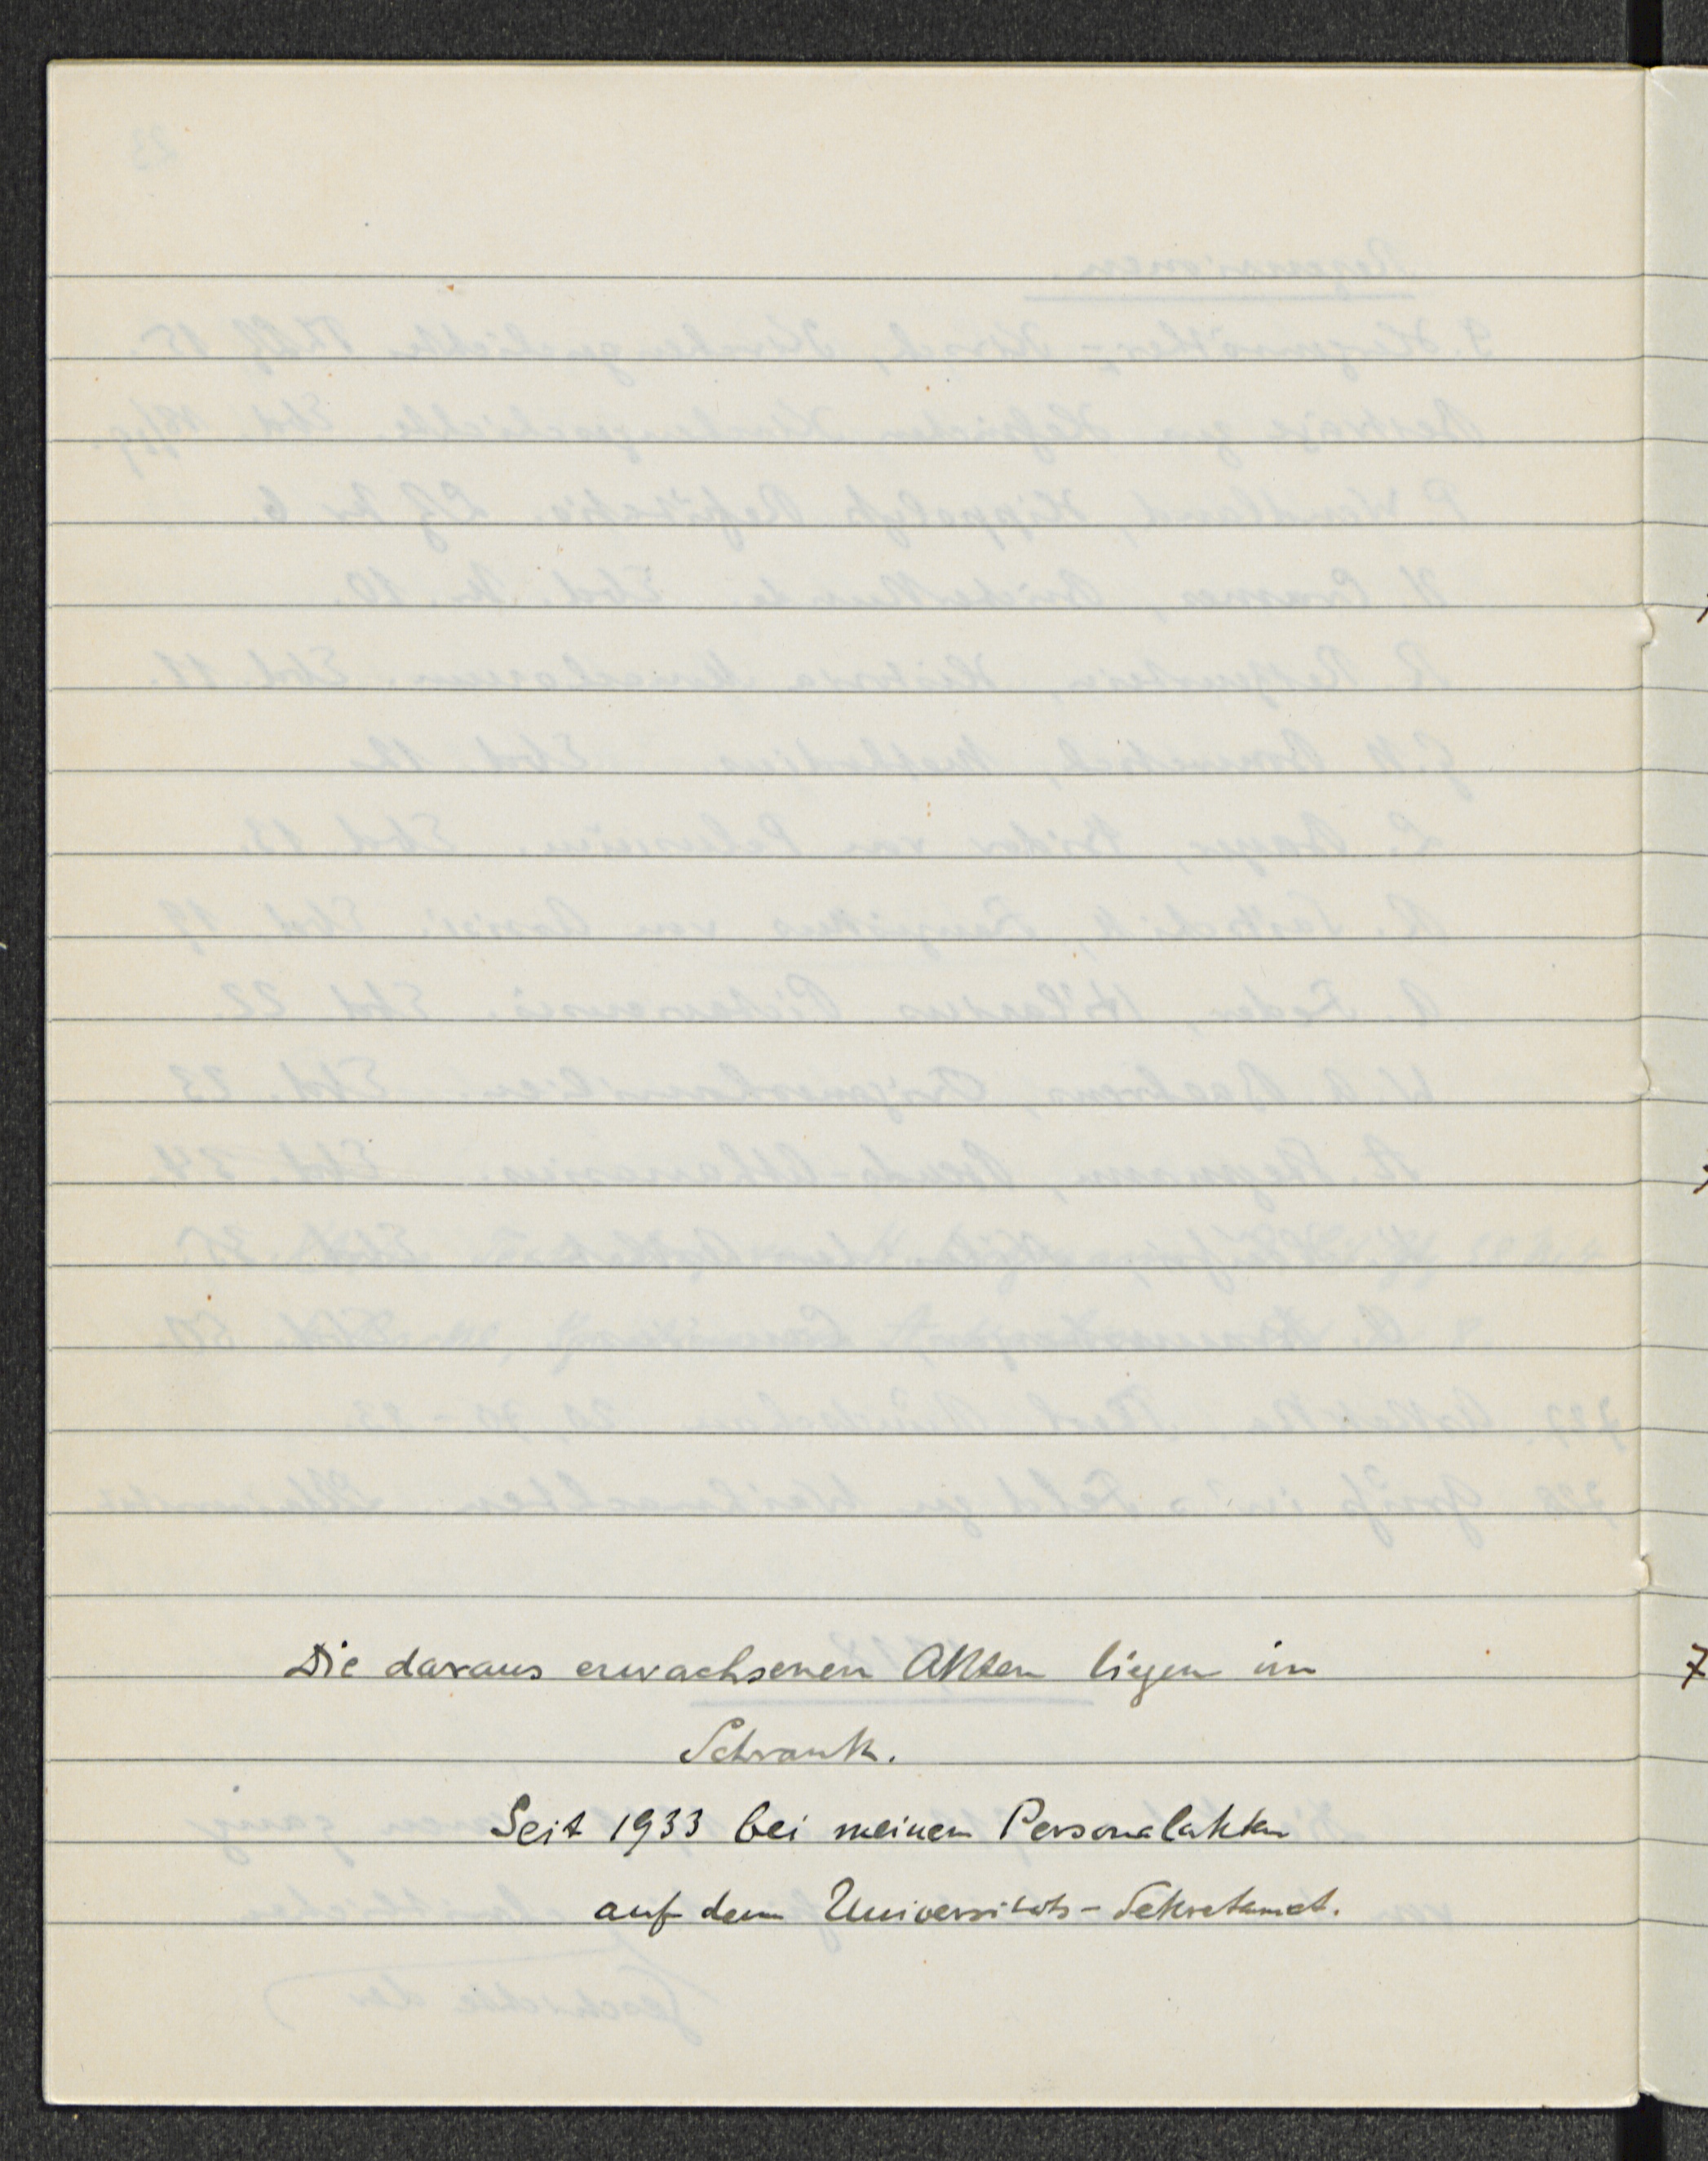 Die daraus erwachsenen Akten liegen im
Schrank.
Seit 1933 bei meinen Personalakten
auf dem Universitäts-Sekretariat.